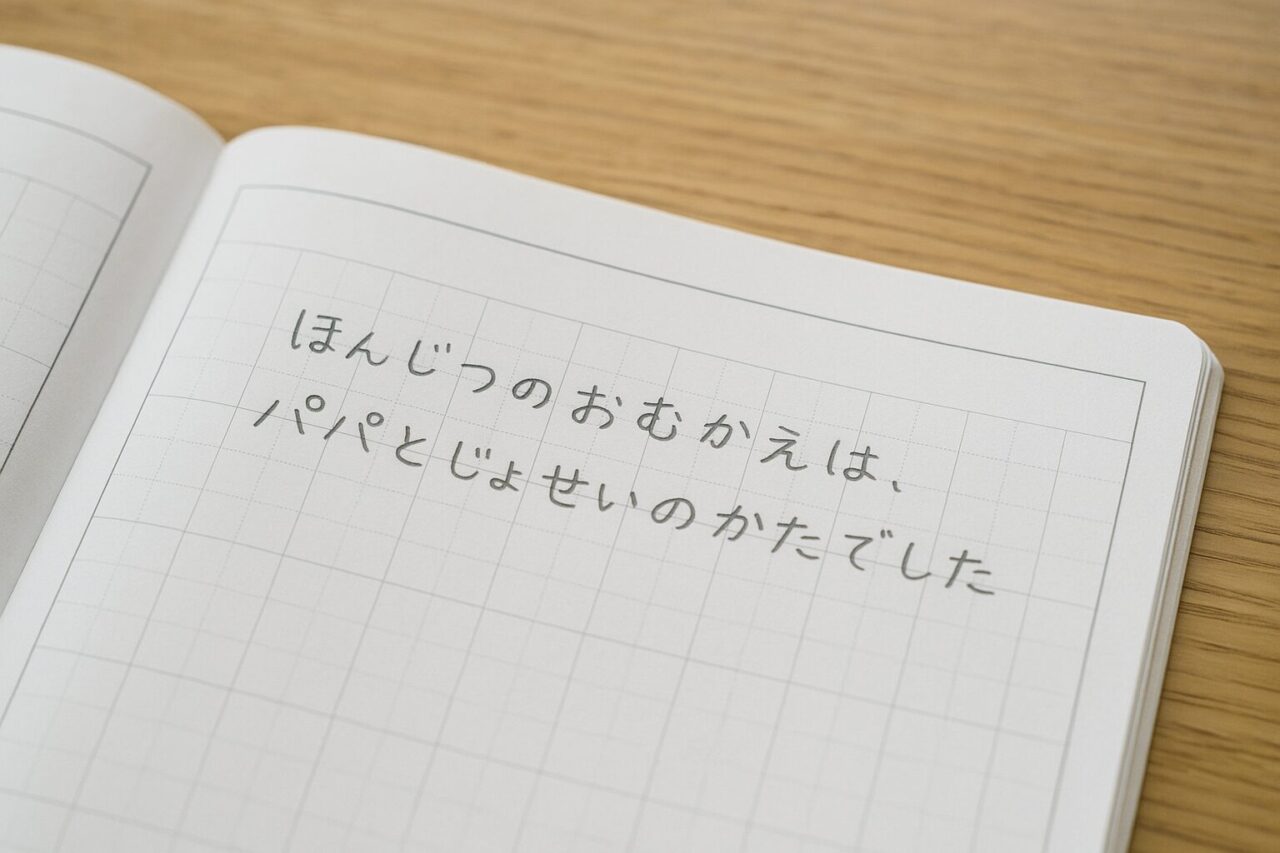 ほんじつのおむかえは、
パパとじょせいのかたでした